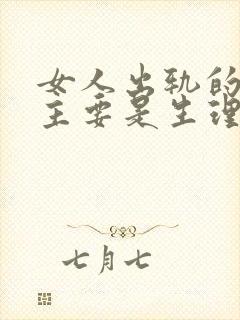 女人出轨的
主要是生理
七月七